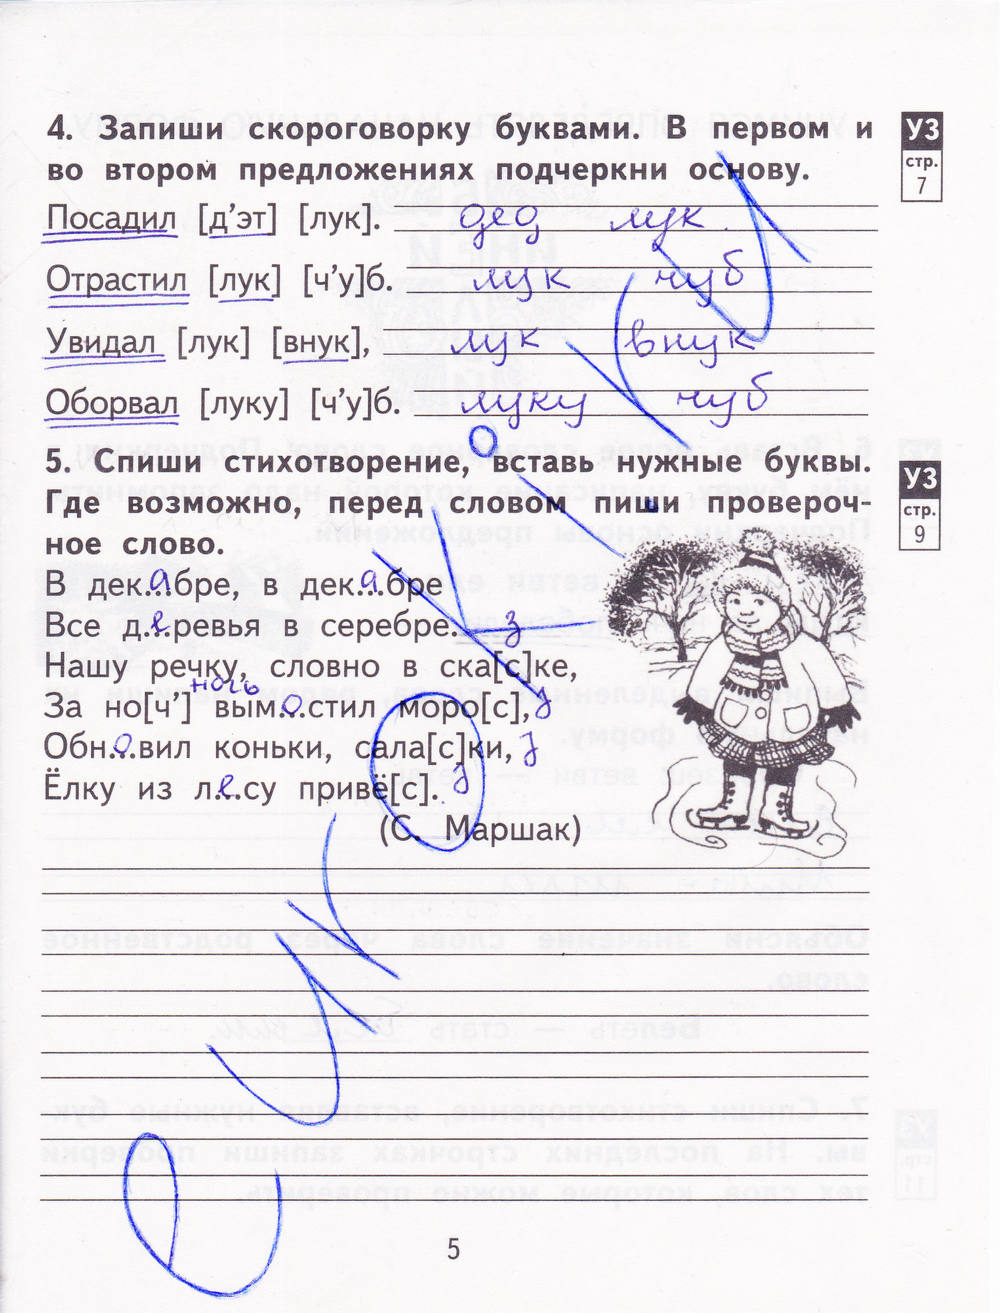 4. Запиши скороговорку буквами. В первом и
во втором предложениях подчеркни основу.
УЗ
стр.
7
Посадил [д’эт] [лук]. дед лук.
Отрастил [лук] [ч’у]б. лук чуб
Увидал [лук] [внук], лук внук
Оборвал [луку] [ч’у]б. луку чуб
5. Спиши стихотворение, вставь нужные буквы.
Где возможно, перед словом пиши провероч-
ное слово.
УЗ
стр.
9
В дек.а.бре, в дек.а.бре
Все д.е.ревья в серебре. з
Нашу речку, словно в ска[с]ке,
ночь
За но[ч’] вым.о.стил моро[с], з
Обн.о.вил коньки, сала[с]ки, з
Ёлку из л.е.су привё[с]. з
(С. Маршак)
5